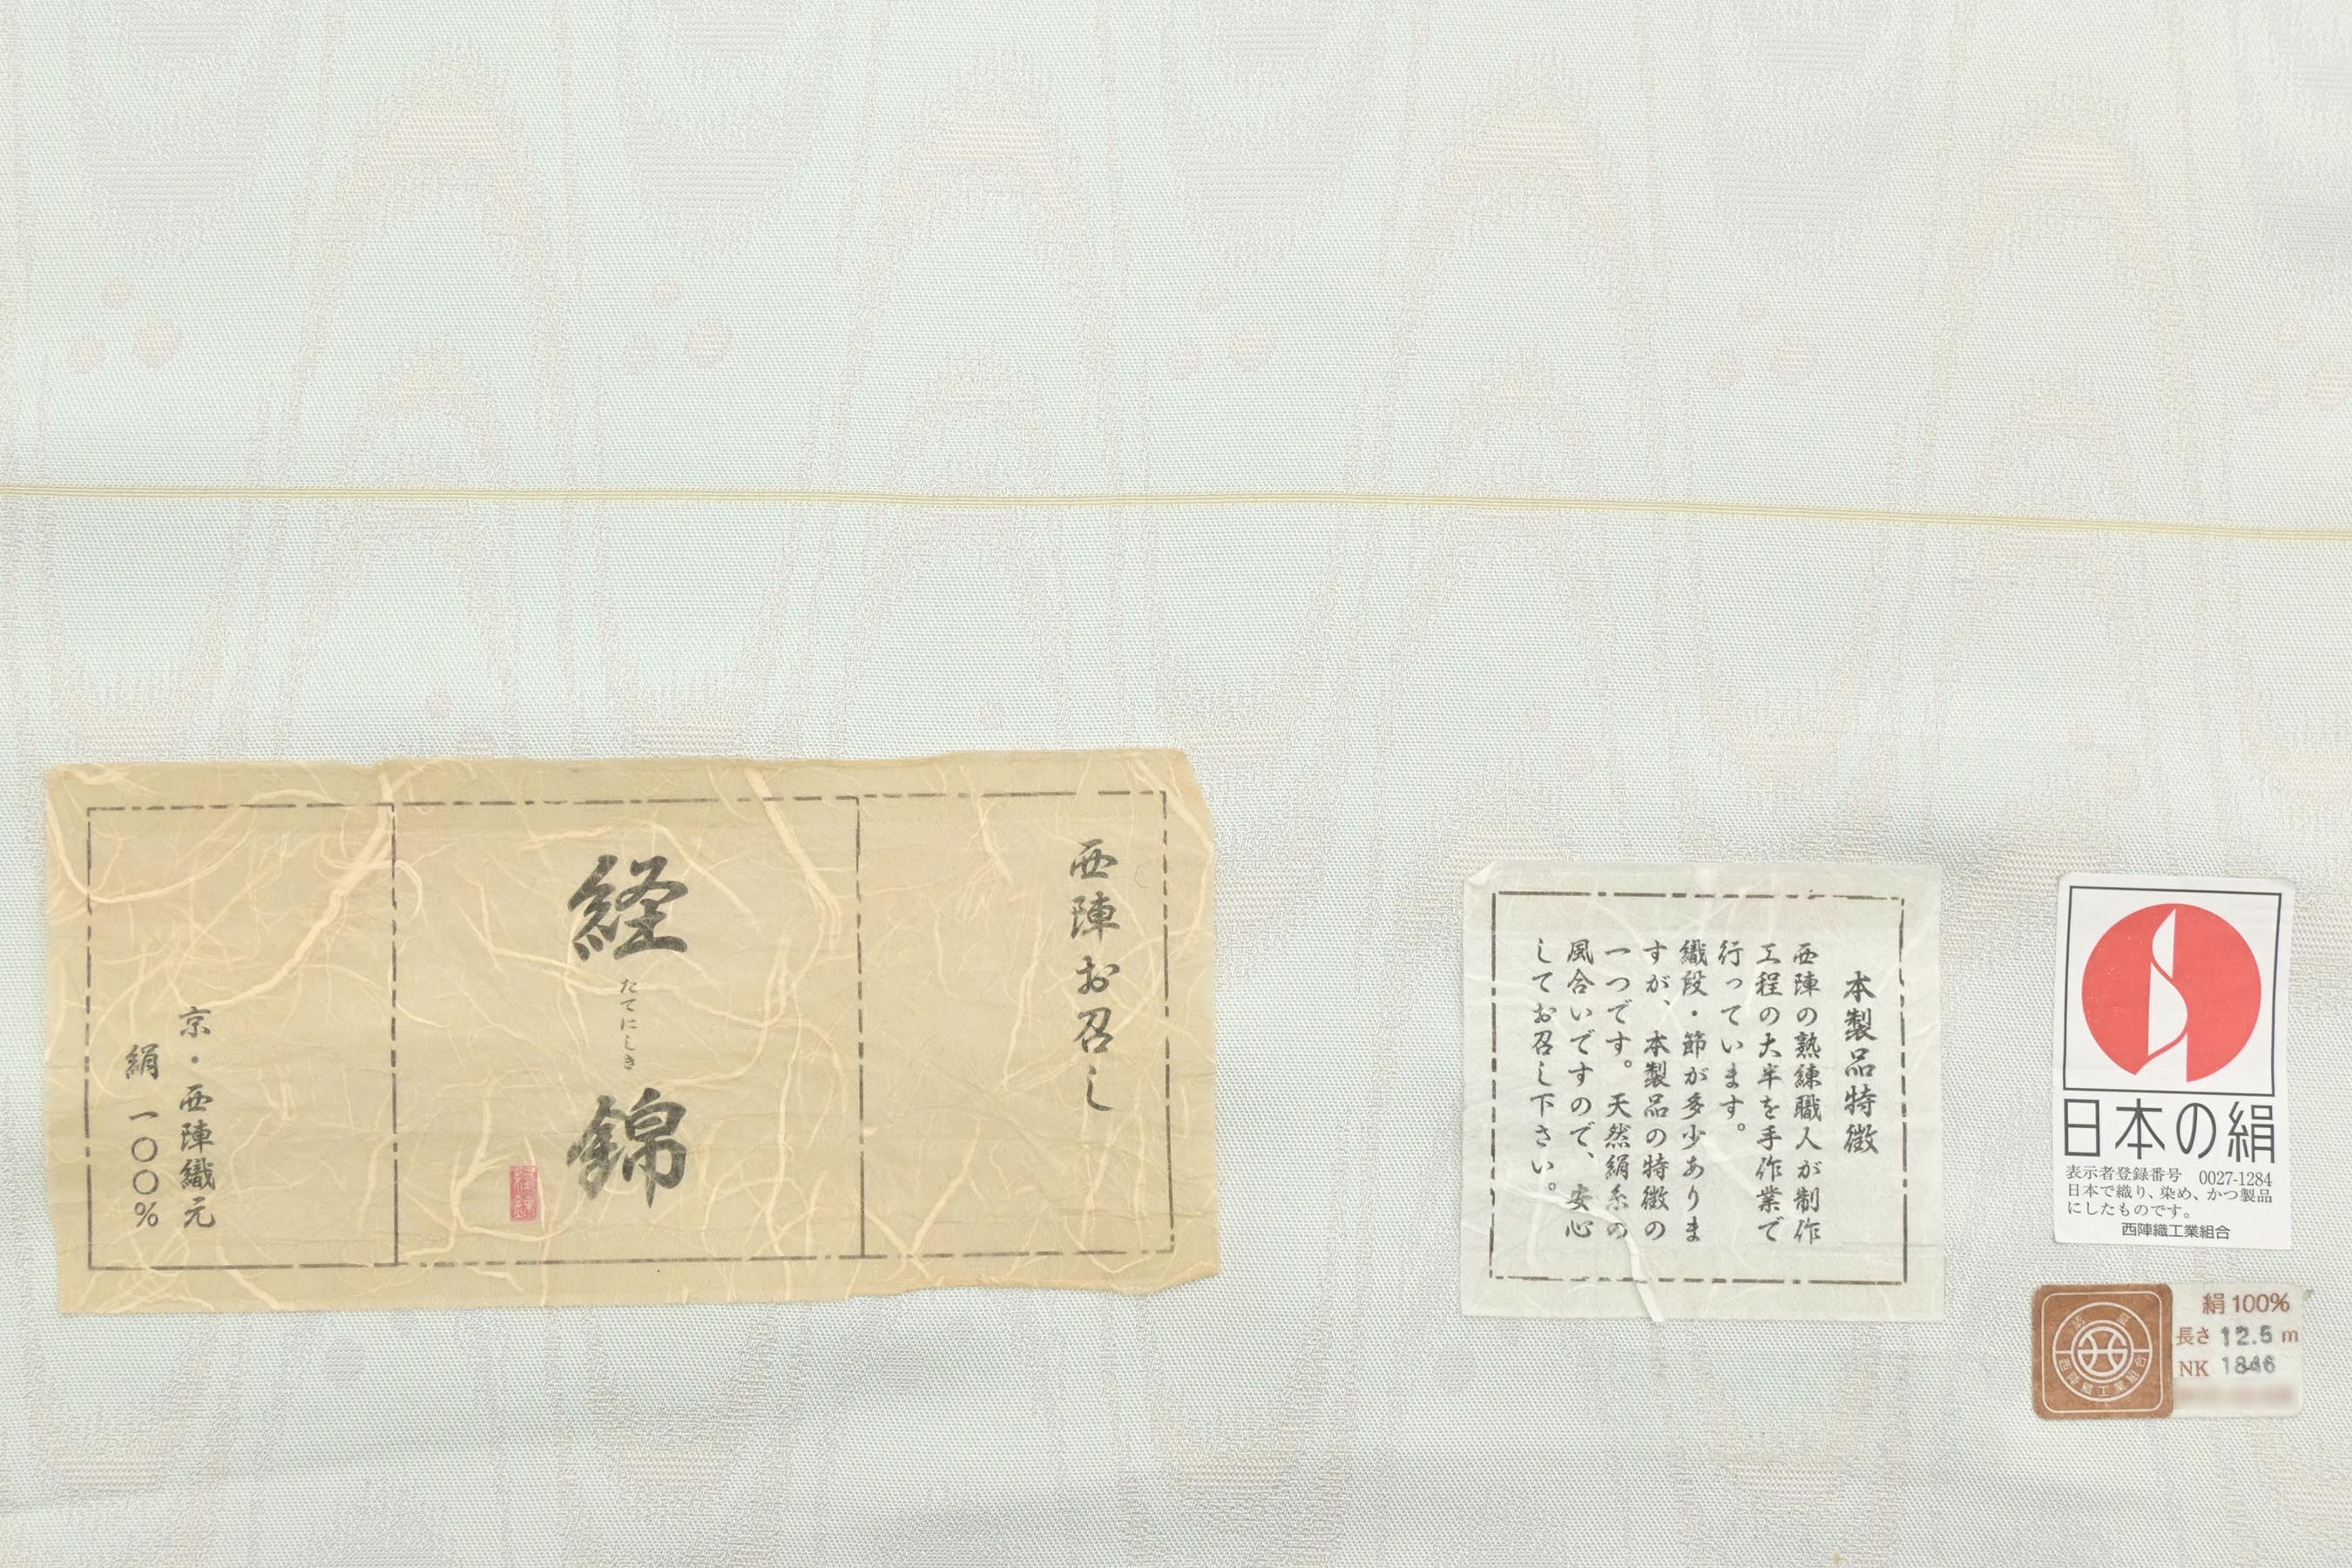 西陣お召し
経
たてにしき
錦
経錦
京・西陣織元
絹 一〇〇%
本製品特徴
西陣の熟練職人が制作
工程の大半を手作業で
行っています。
織段・節が多少ありま
すが、本製品の特徴の
一つです。天然絹糸の
風合いですので、安心
してお召し下さい。
日本の絹
表示者登録番号 0027-1284
日本で織り、染め、かつ製品
にしたものです。
西陣織工業組合
絹100%
長さ 12.5 m
NK 1846
西陣織工業組合